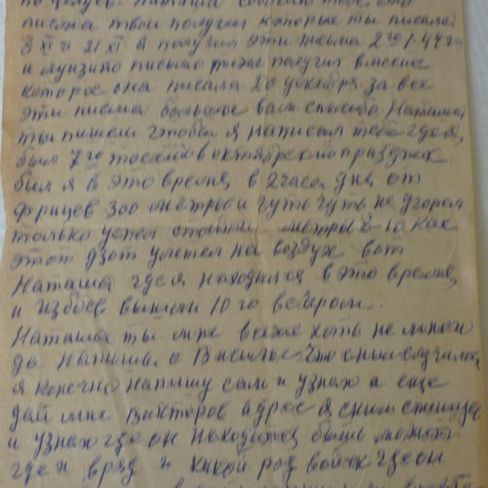 поцелуев. Наташа сообщаю тебе что
письма твои получил которые ты писала
8 XI и 21 XI я получил эти письма 2го 1.44 г
и письмо тоже получил вместе
которое она писала 20 декабря за все
эти писма большое вам спасибо Наташа
ты пишеш чтобы я написал тебе где я
был 7го тоесть в октябрьский праздник
был я в это время в 2 часа дня от
фрицев 300 метров и чуть чуть не угорел
только успел отойти метров 8-10 как
этот дзот улетел на воздух вот
Наташа где я находился в это время
и из боев вышли 10го вечером.
Наташа ты мне хоть не много
да напиши о Василье что с ним случилось
я конечно напишу сам и узнаю а еще
дай мне Викторов адрес я с ним спишусь
и узнаю где он находится быть может
где и вряд и какой род войск где он